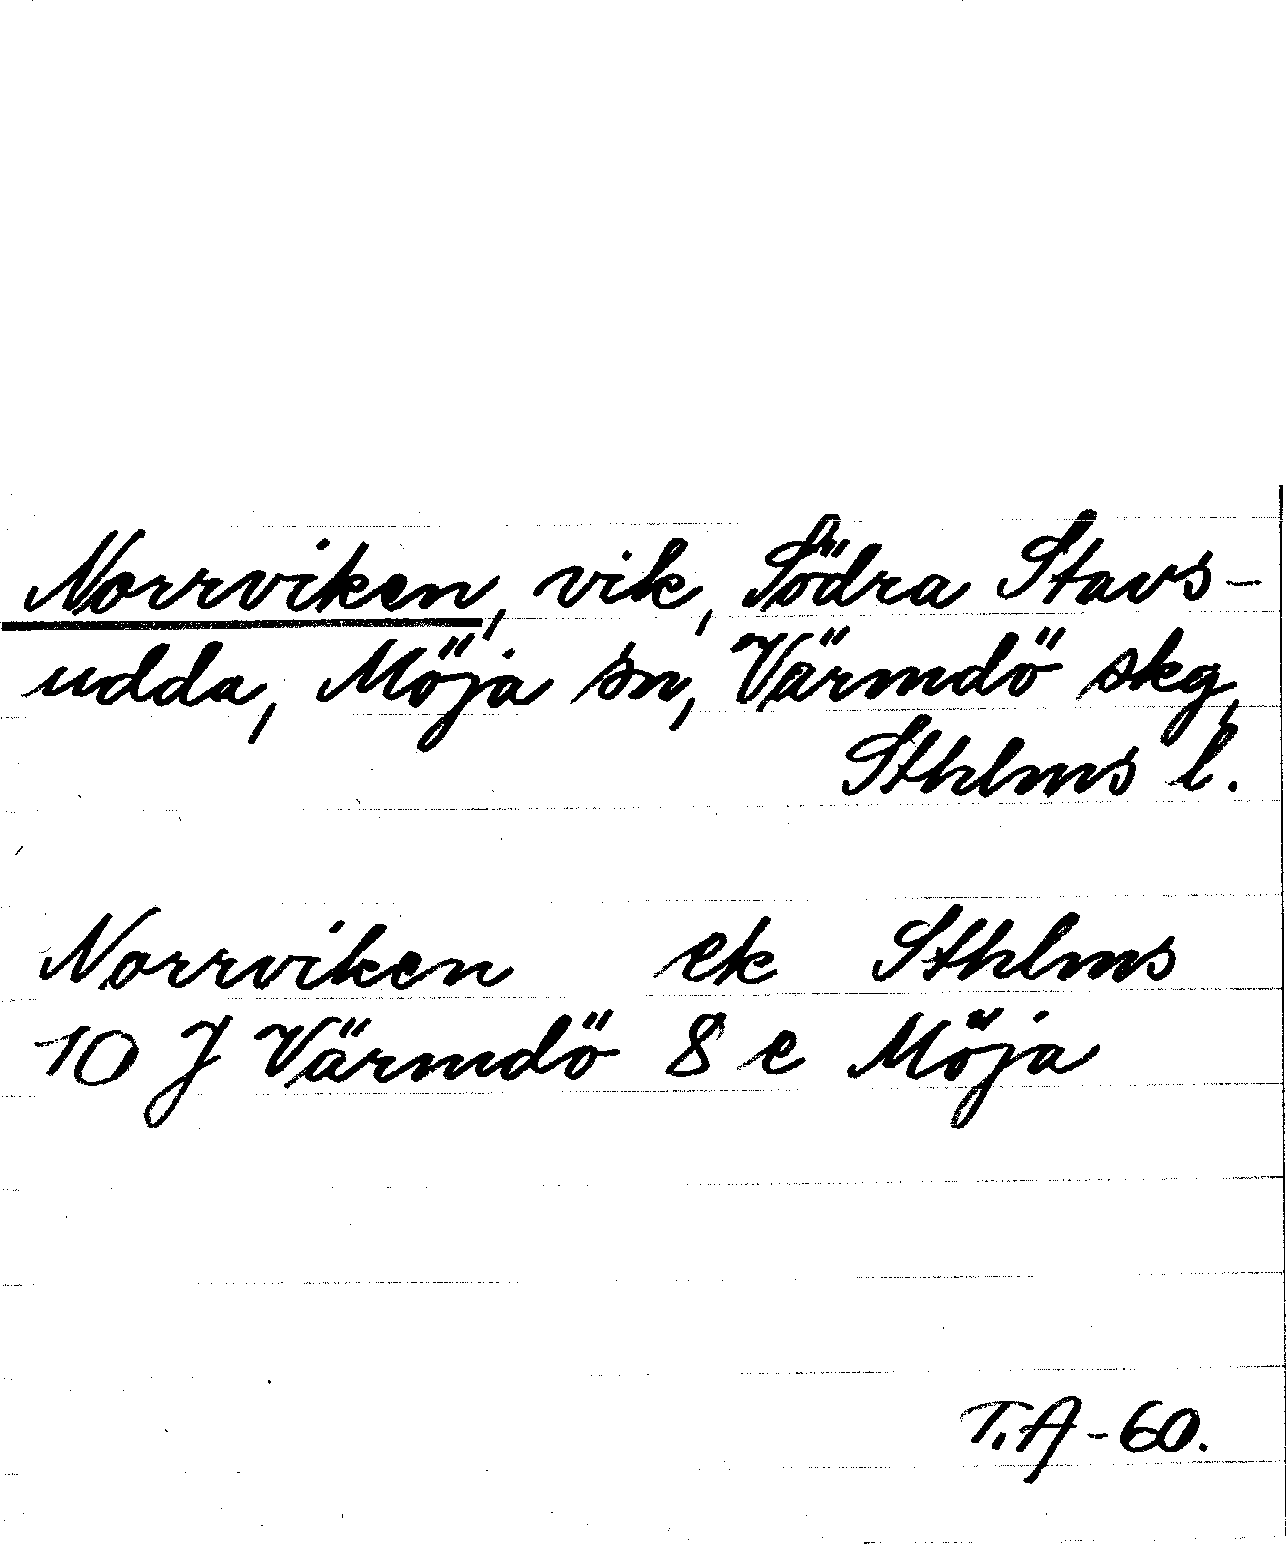 Norrviken, vik, Södra Stavs-
udda, Möja sn, Värmdö skg,
Sthlms l.
Norrviken ek Sthlms
10 J Värmdö 8 e Möja
T.A-60.